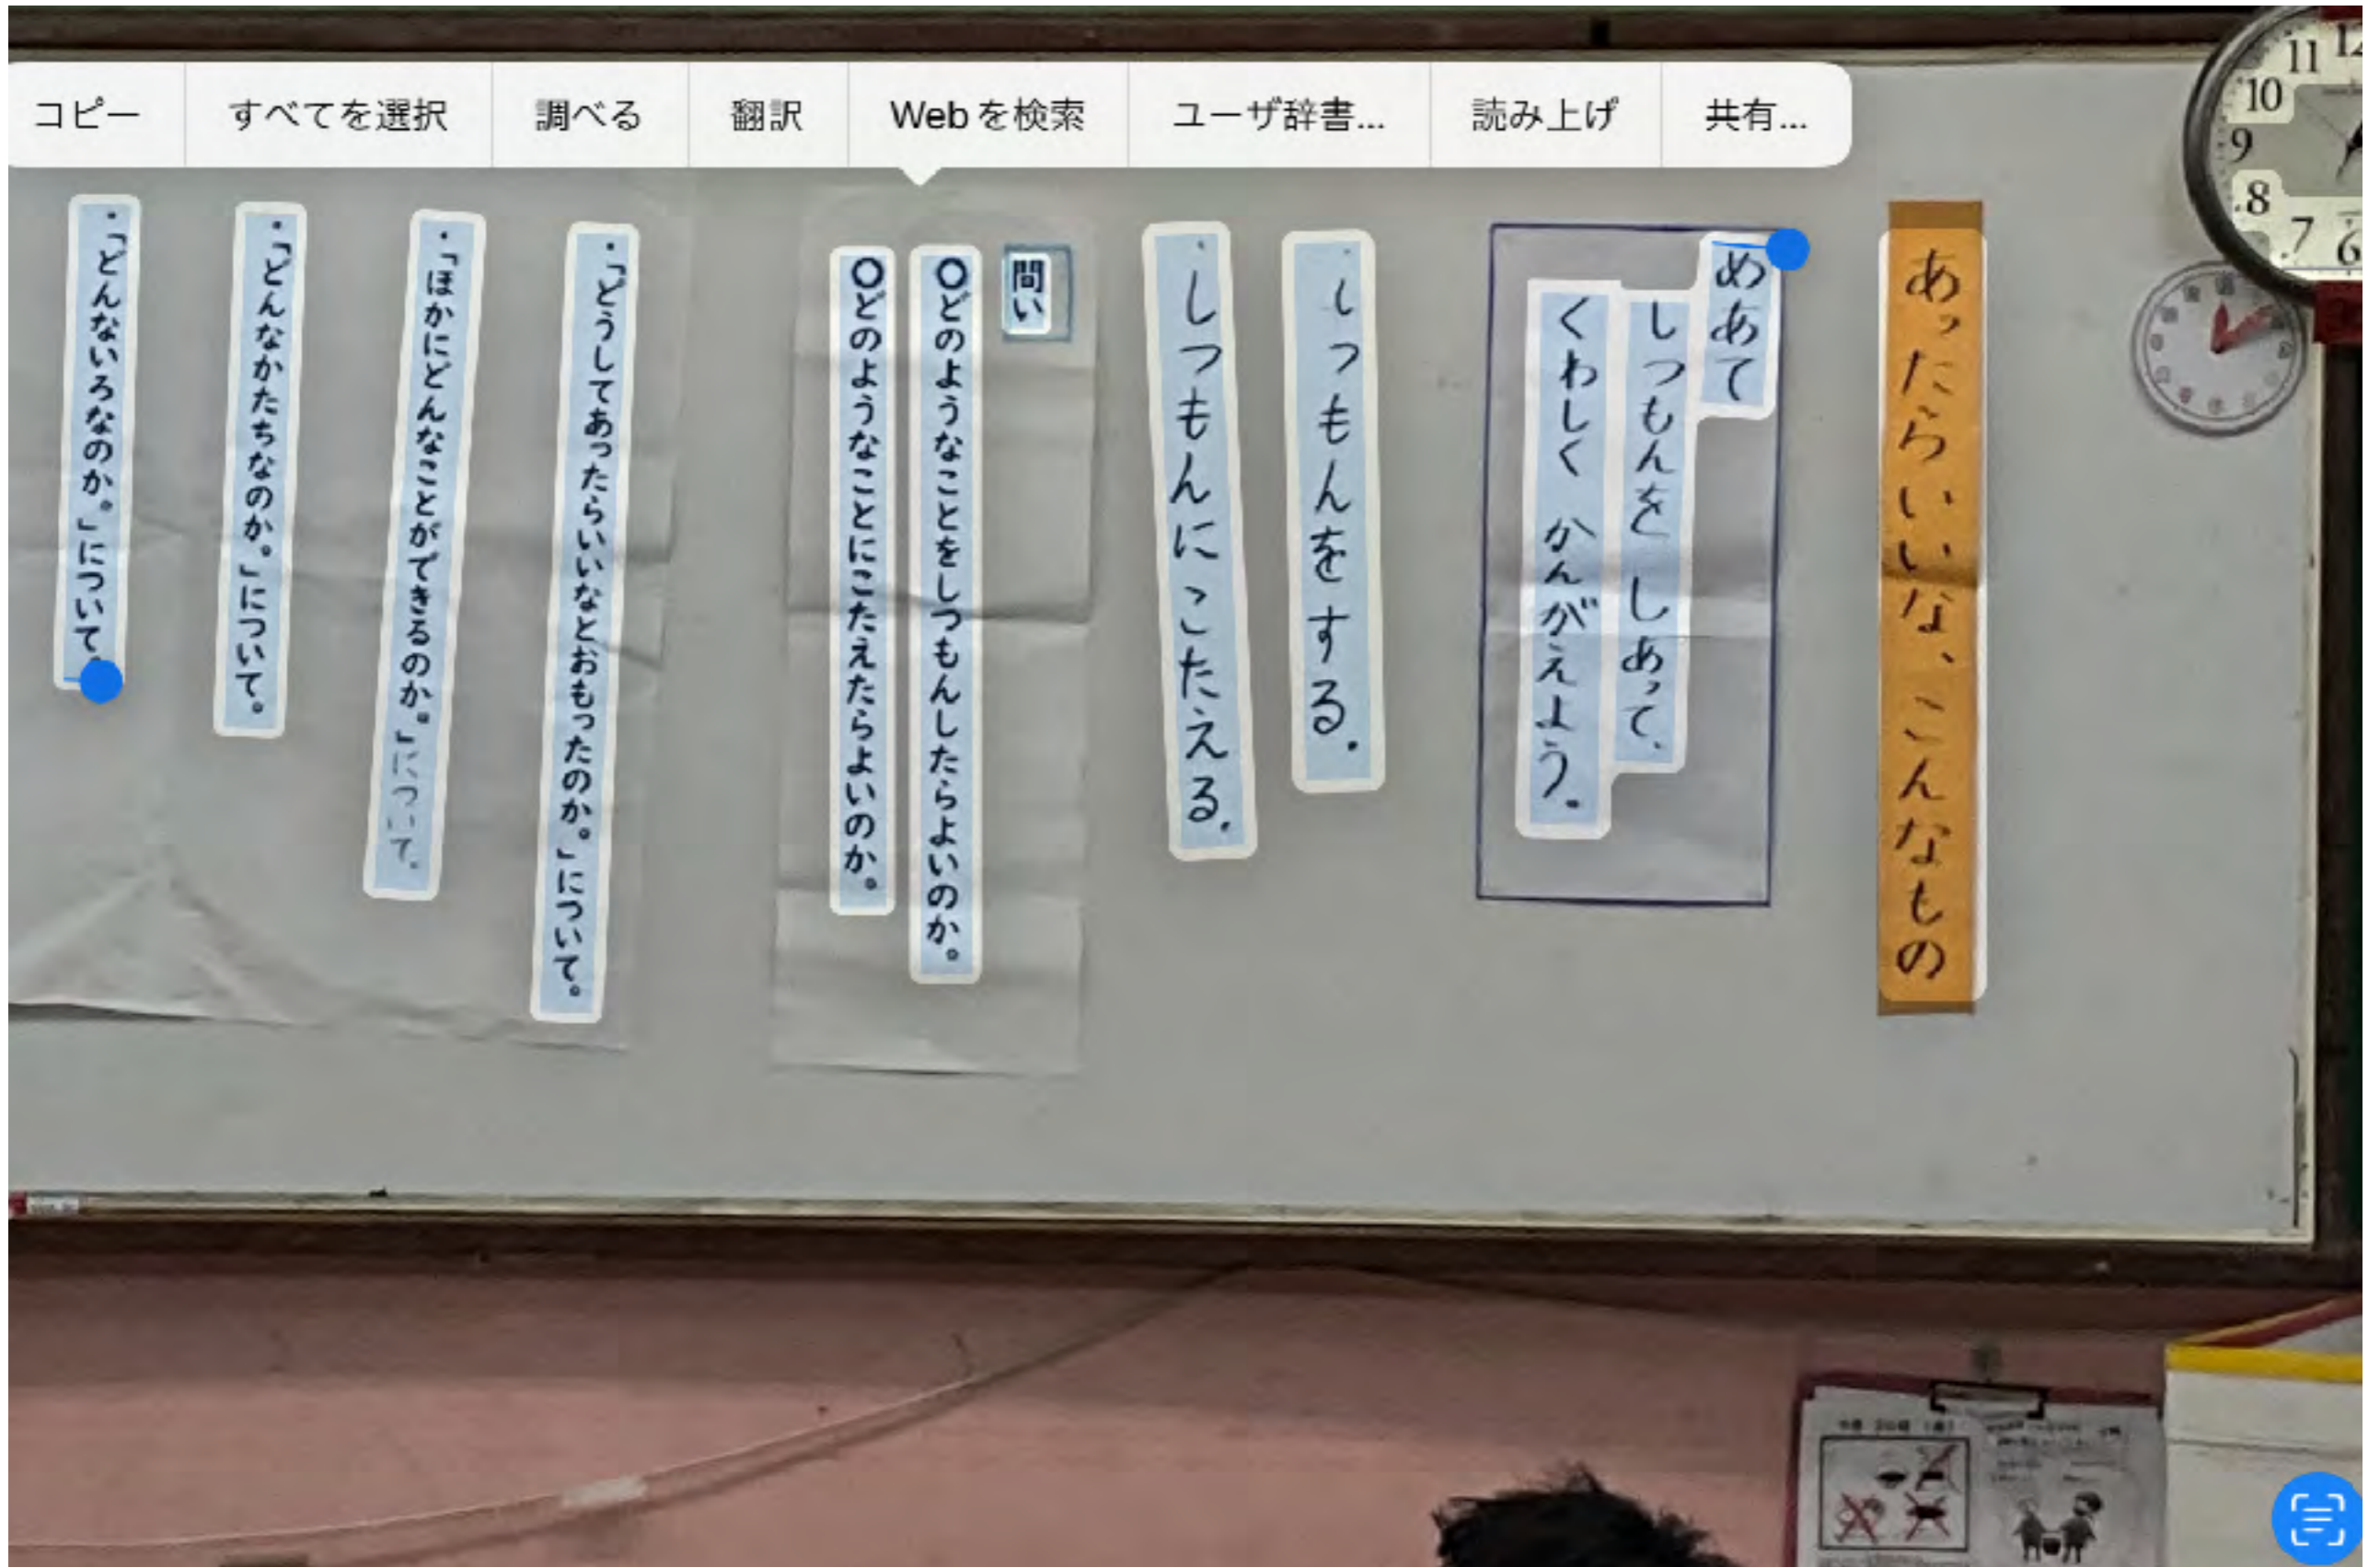 コピー
すべてを選択
調べる
翻訳
Webを検索
ユーザ辞書...
読み上げ
共有...
11
12
10
9
8
7
6
あったらいいな、こんなもの
めあて
しつもんを しあって、
くわしく かんがえよう。
・しつもんをする。
・しつもんにこたえる。
問い
〇どのようなことをしつもんしたらよいのか。
〇どのようなことにこたえたらよいのか。
・「どうしてあったらいいなとおもったのか。」について。
・「ほかにどんなことができるのか。」について。
・「どんなかたちなのか。」について。
・「どんないろなのか。」について。